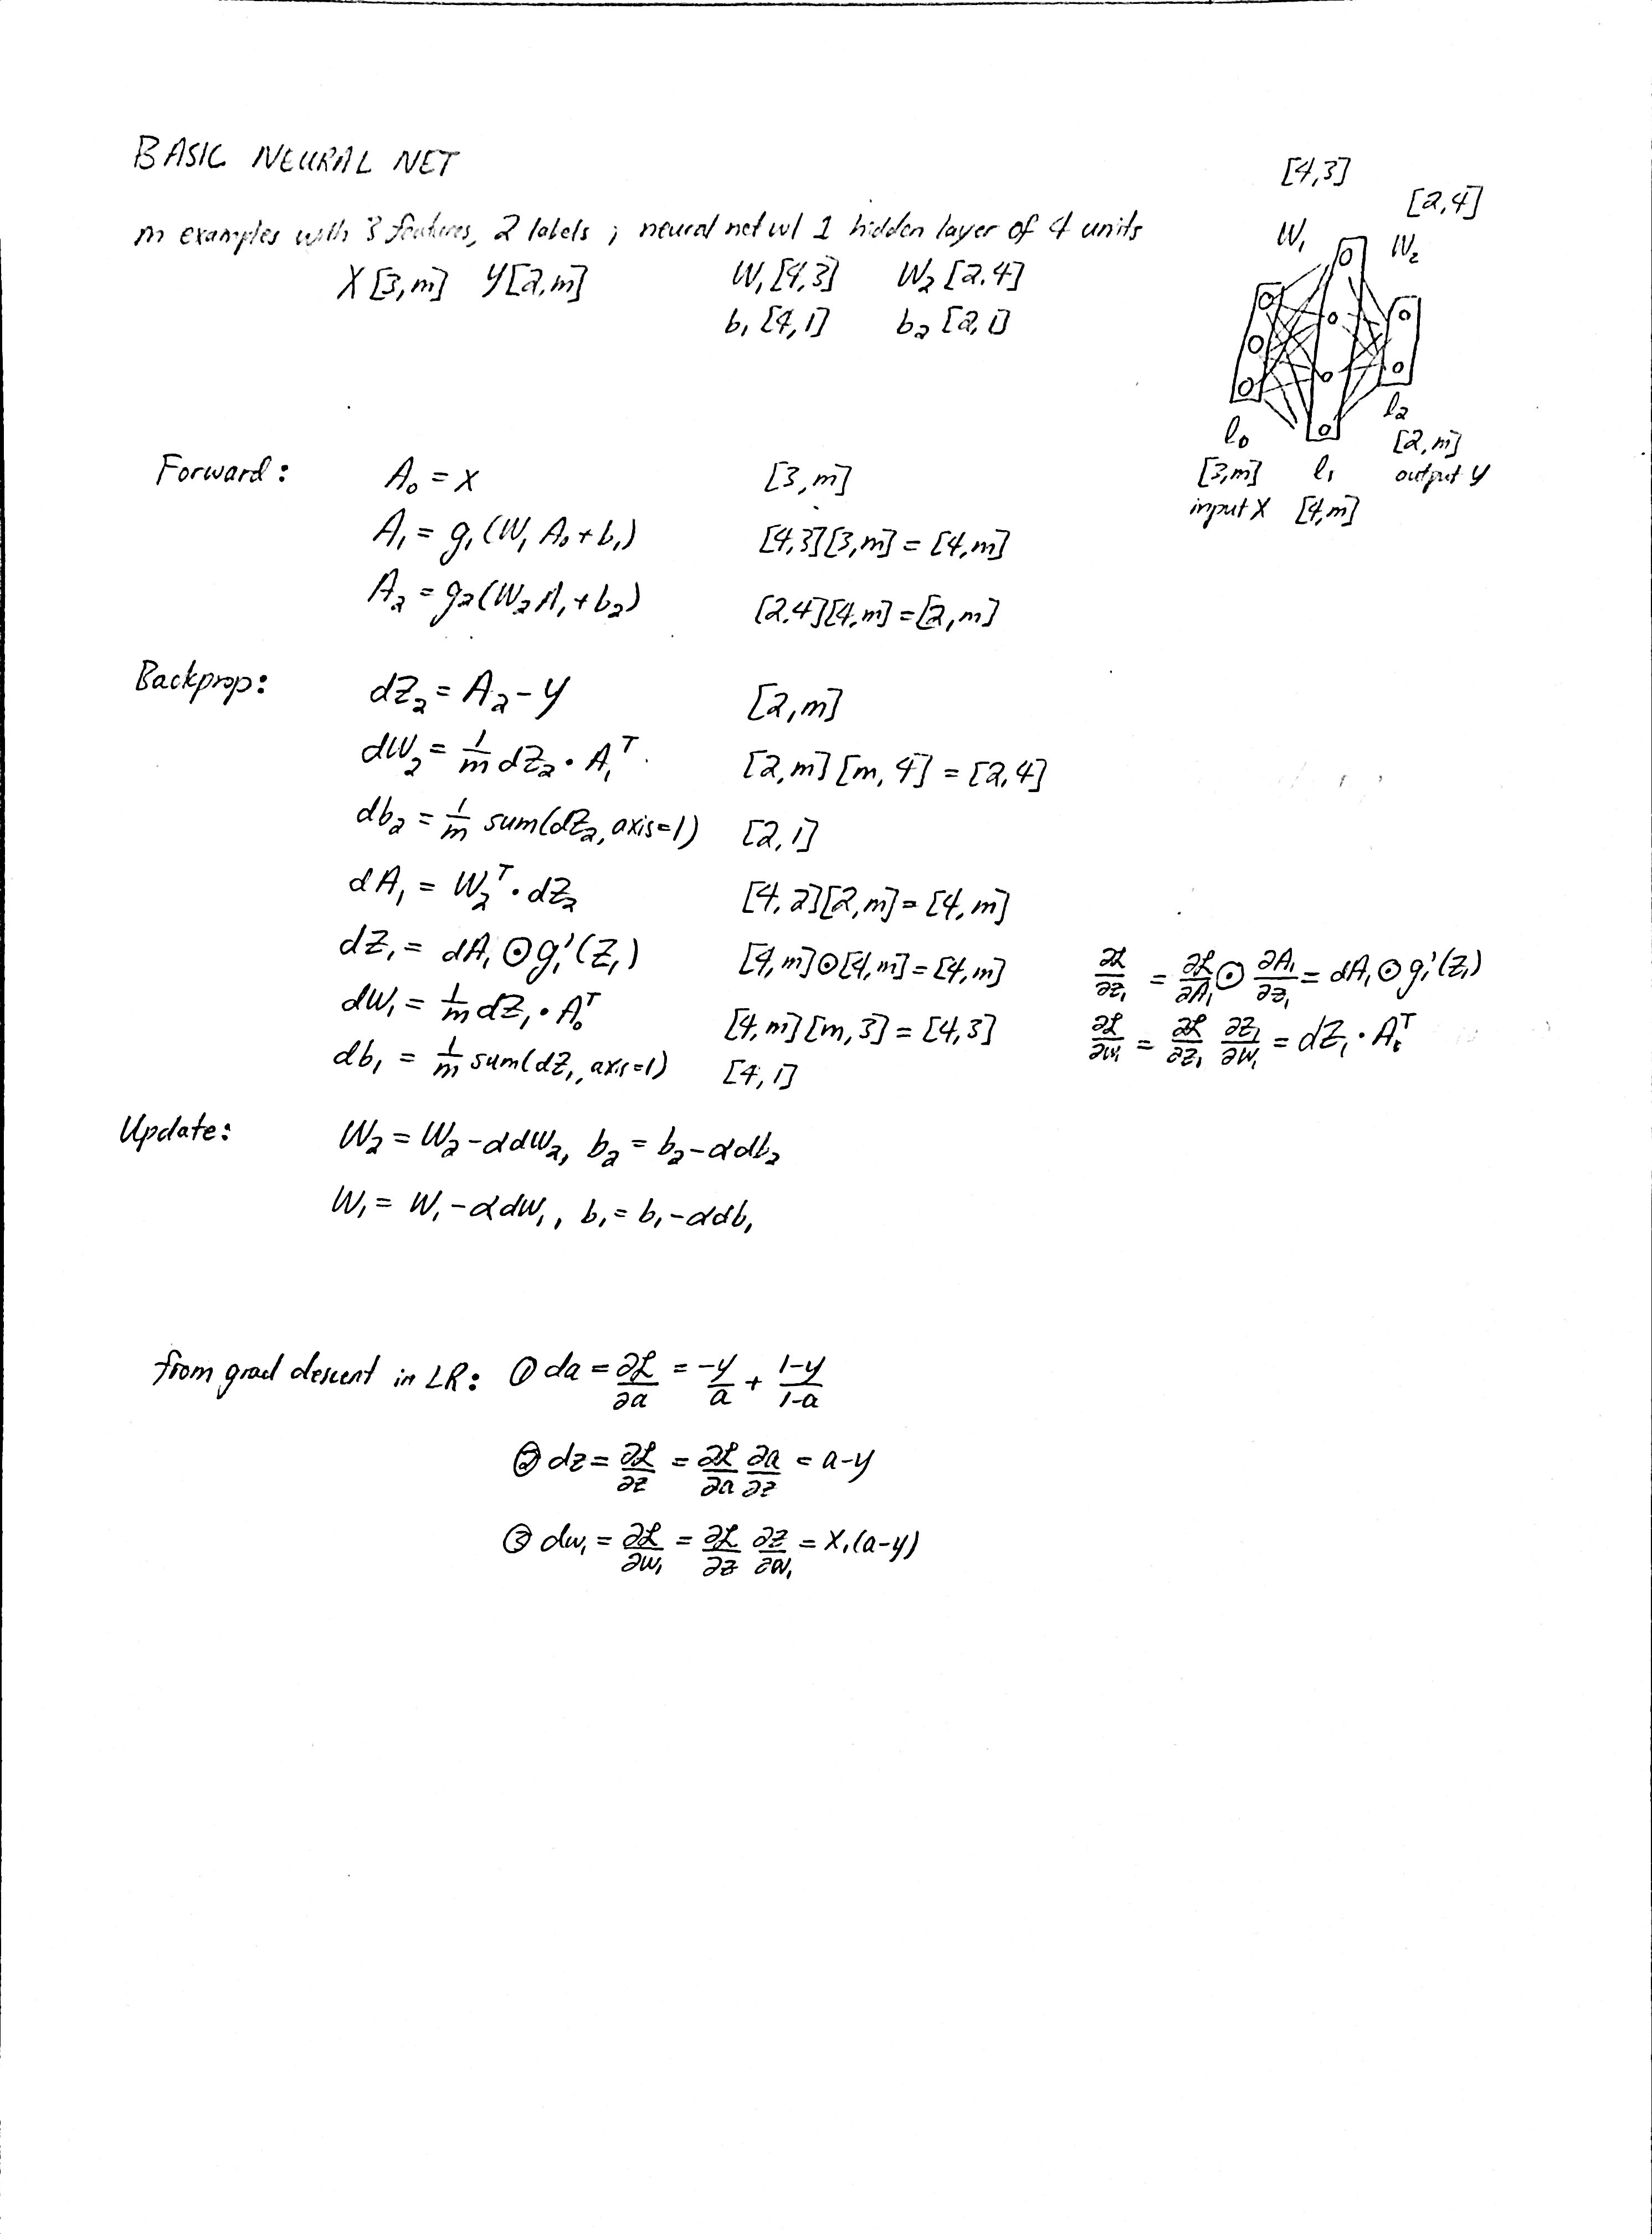 BASIC NEURAL NET
m examples with 3 features, 2 labels ; neural net w/ 1 hidden layer of 4 units
X [3,m] Y [2,m] W₁ [4,3] W₂ [2,4]
b₁ [4,1] b₂ [2,1]
[4,3]
[2,4]
W₁ W₂
l₀
[3,m]
input X
l₁
[4,m]
l₂
[2,m]
output Y
Forward: A₀ = X [3,m]
A₁ = g₁(W₁ A₀ + b₁) [4,3][3,m] = [4,m]
A₂ = g₂(W₂ A₁ + b₂) [2,4][4,m] = [2,m]
Backprop: dZ₂ = A₂ - Y [2,m]
dW₂ = 1/m dZ₂ • A₁ᵀ [2,m][m,4] = [2,4]
db₂ = 1/m sum(dZ₂, axis=1) [2,1]
dA₁ = W₂ᵀ • dZ₂ [4,2][2,m] = [4,m]
dZ₁ = dA₁ ⊙ g₁'(Z₁) [4,m] ⊙ [4,m] = [4,m] ∂ℒ/∂z₁ = ∂ℒ/∂A₁ ⊙ ∂A₁/∂z₁ = dA₁ ⊙ g₁'(z₁)
dW₁ = 1/m dZ₁ • A₀ᵀ [4,m][m,3] = [4,3] ∂ℒ/∂w₁ = ∂ℒ/∂z₁ ∂z₁/∂w₁ = dZ₁ • A₀ᵀ
db₁ = 1/m sum(dZ₁, axis=1) [4,1]
Update: W₂ = W₂ - αdW₂, b₂ = b₂ - αdb₂
W₁ = W₁ - αdW₁, b₁ = b₁ - αdb₁
from grad descent in LR: ① da = ∂ℒ/∂a = -y/a + 1-y/1-a
② dz = ∂ℒ/∂z = ∂ℒ/∂a ∂a/∂z = a-y
③ dw₁ = ∂ℒ/∂w₁ = ∂ℒ/∂z ∂z/∂w₁ = x₁(a-y)